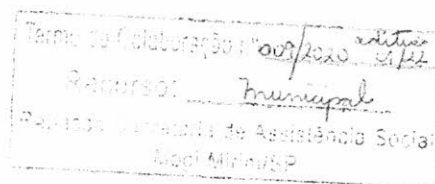 Termo de Colaboração nº 009/2020 aditivo 01/22
Recursos municipal
Repasse Secretaria de Assistência Social
Mogi Mirim/SP